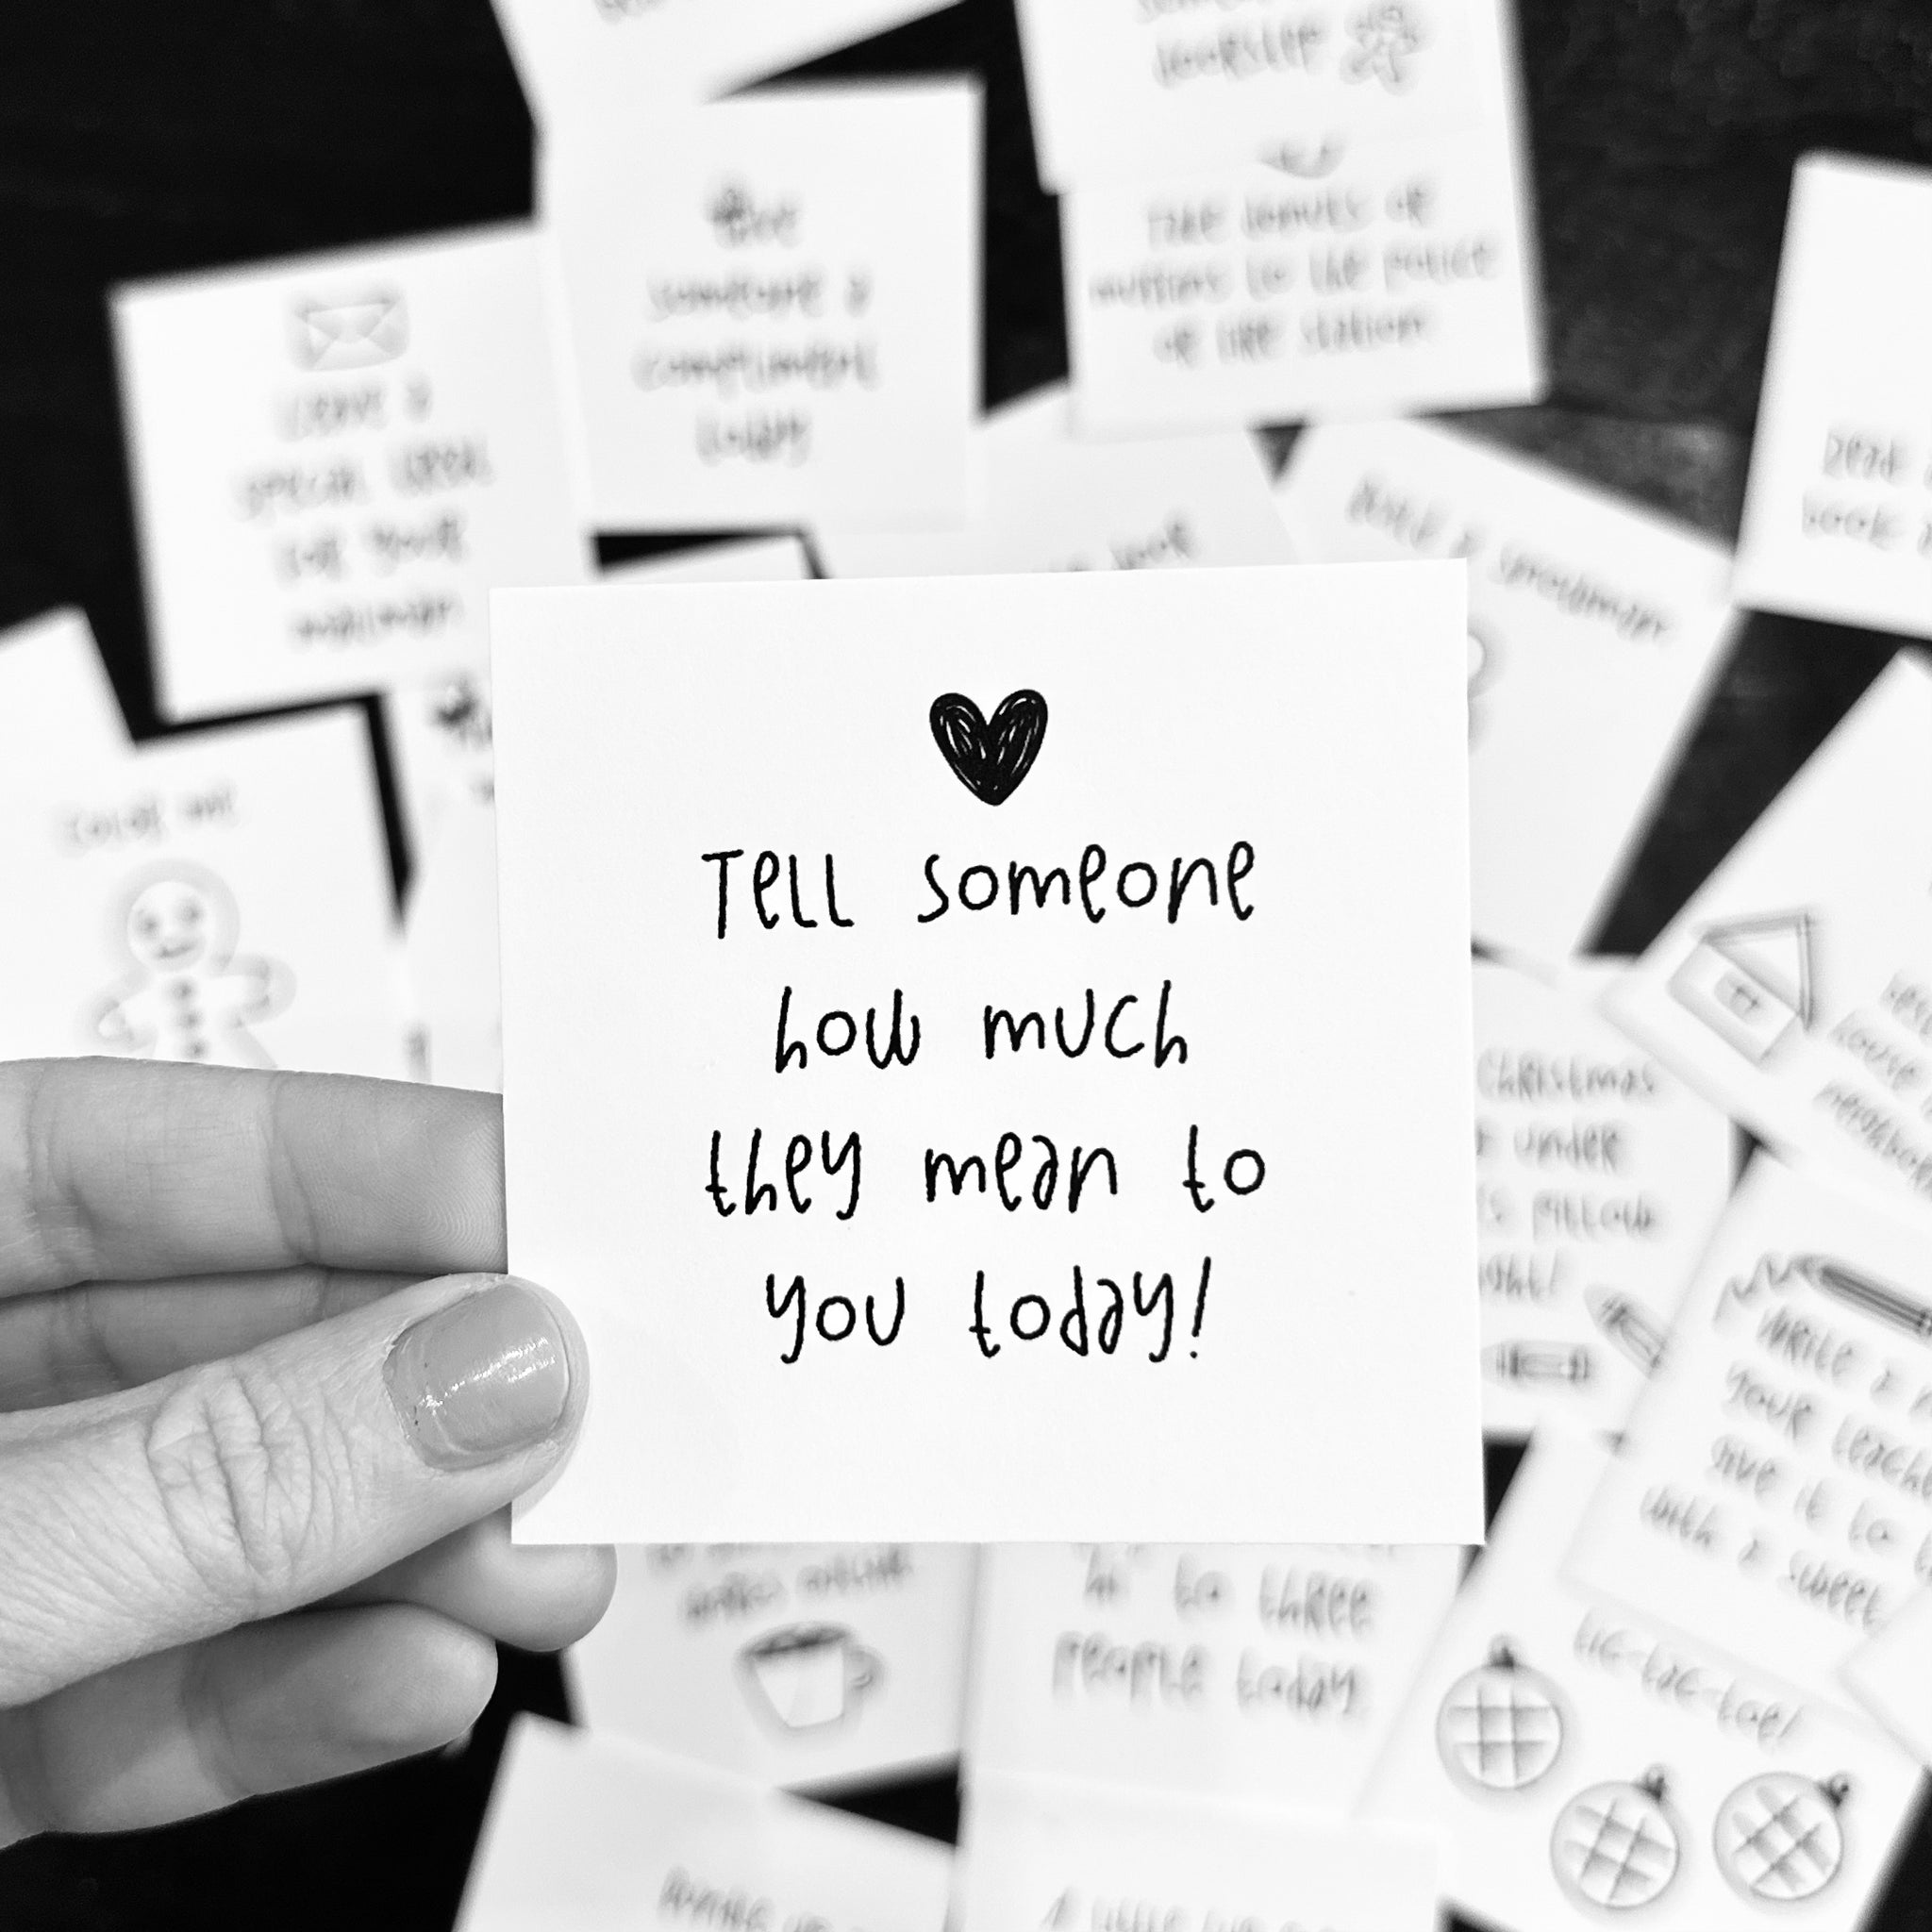 Tell someone
how much
they mean to
you today!
Give
someone a
compliment
today
Leave a
special treat
for your
mailman
Take donuts or
muffins to the police
or fire station
Build a snowman
Read
book
Color me
Christmas
under
pillow
Write a
your teacher
give it to
with a sweet
hi" to three
people today
tic-tac-toe!